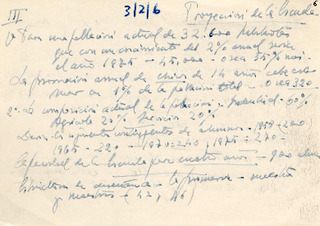 III 3/2/6 Proyección de la Escuela 6
1º Para una población actual de 32.600 habitantes
que con un crecimiento del 2% anual sería
el año 1975 - 45.000 - o sea 35% más.
La promoción anual de chicos de 14 años cabe esti
mar en 1% de la población total - o sea 320
2º La composición actual de la población: Industrial - 60%
Agrícola 20% Servicios 20%
los siguientes contingentes de alumnos - 1959 = 200
1965 - 220 - 1970 = 240 1975 - 270 -
de la Escuela para cuatro años - 900
de enseñanza - la primaria - maestra
y maestros - (42,